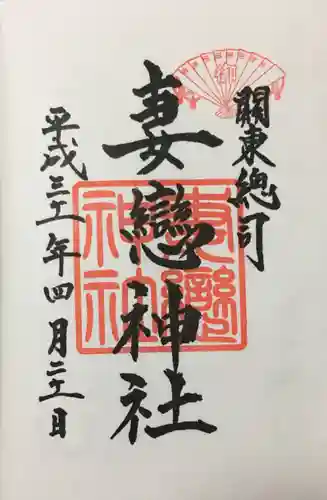 關東總司
妻戀神社
平成三十一年四月二十一日
妻戀神社